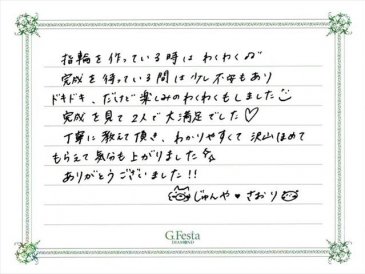 指輪を作っている時はわくわく♫
完成を待っている間は少し不安もあり
ドキドキ、だけど楽しみのわくわくもしました☺
完成を見て2人で大満足でした♡
丁寧に教えて頂き、わかりやすくて沢山ほめて
もらえて気分も上がりました
ありがとうございました!!
じゅんや♥さおり
G.Festa
DIAMOND